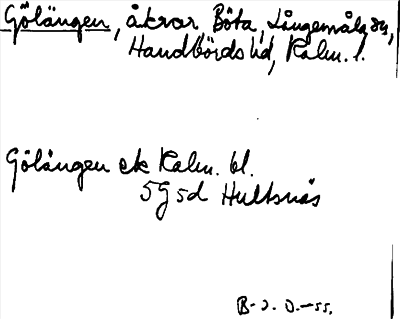 Gölängen, åkrar Böta, Långemåla sn,
Handbörds hd, Kalm. l.
Gölängen ek Kalm. bl.
5G5d Hultsnäs